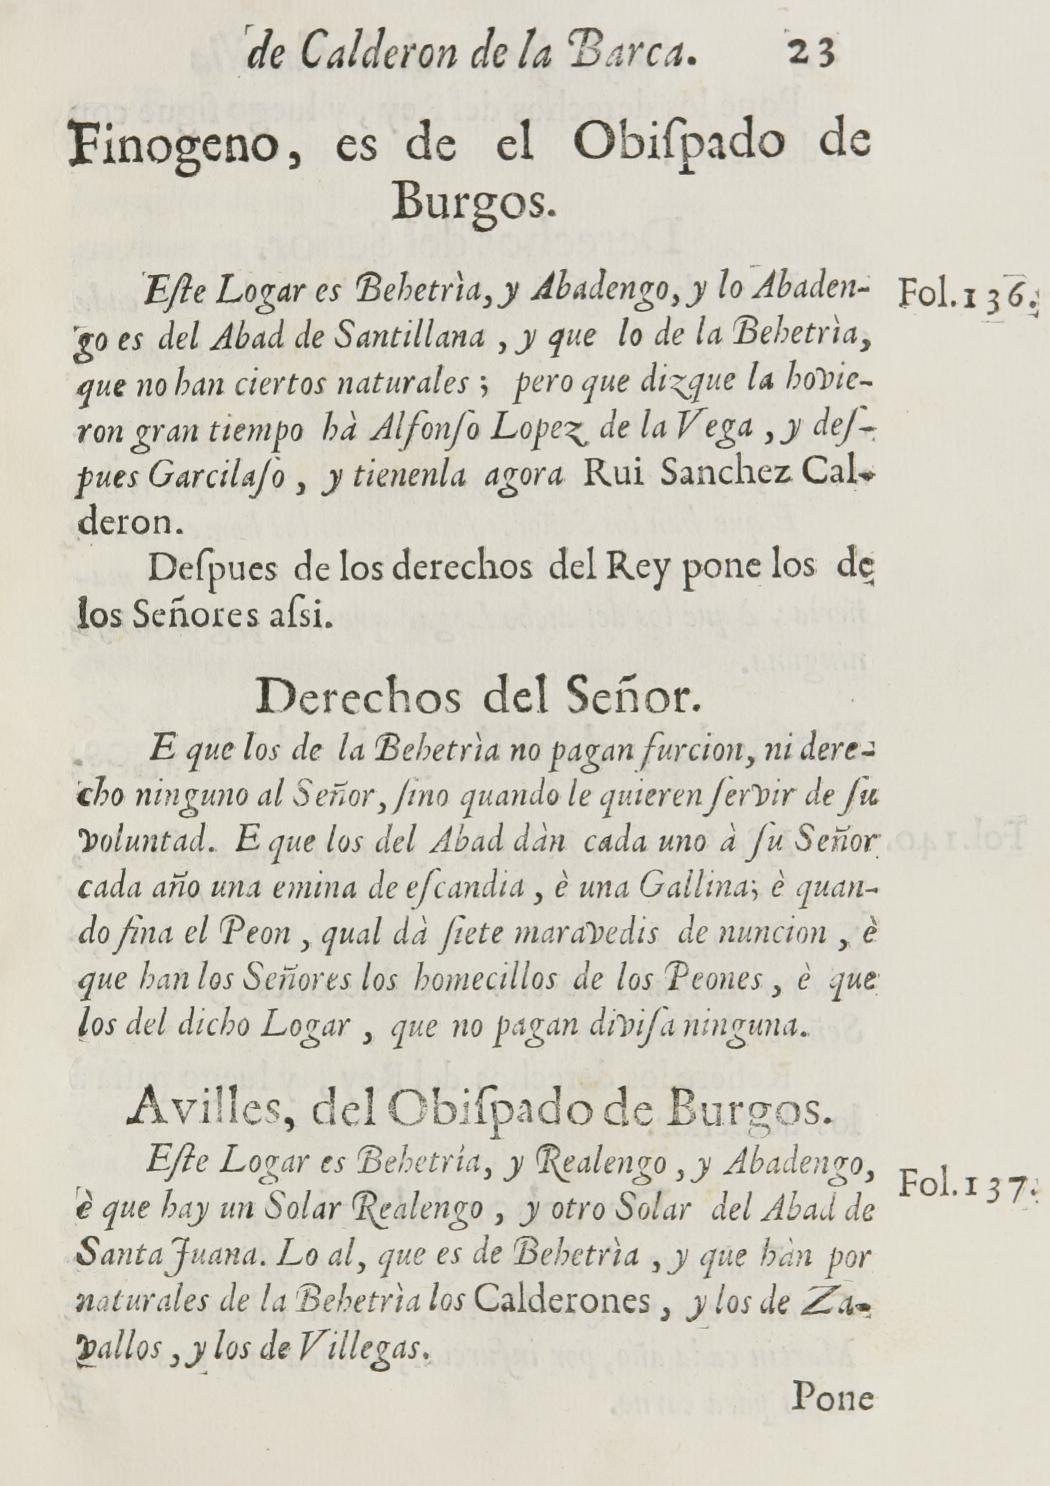 de Calderon de la Barca. 23
Finogeno, es de el Obiſpado de
Burgos.
Eſte Logar es Behetrìa, y Abadengo, y lo Abaden- Fol. 136.
go es del Abad de Santillana, y que lo de la Behetrìa,
que no han ciertos naturales; pero que dizque la hovie-
ron gran tiempo hà Alfonſo Lopez de la Vega, y deſ-
pues Garcilaſo, y tienenla agora Rui Sanchez Cal-
deron.
Deſpues de los derechos del Rey pone los de
los Señores aſsi.
Derechos del Señor.
E que los de la Behetrìa no pagan furcion, ni dere-
cho ninguno al Señor, ſino quando le quieren ſervir de ſu
voluntad. E que los del Abad dàn cada uno à ſu Señor
cada año una emina de eſcandia, è una Gallina; è quan-
do fina el Peon, qual dà ſiete maravedis de nuncion, è
que han los Señores los homecillos de los Peones, è que
los del dicho Logar, que no pagan diviſa ninguna.
Avilles, del Obiſpado de Burgos.
Eſte Logar es Behetrìa, y Realengo, y Abadengo, Fol. 137.
è que hay un Solar Realengo, y otro Solar del Abad de
Santa Juana. Lo al, que es de Behetrìa, y que hàn por
naturales de la Behetrìa los Calderones, y los de Za-
vallos, y los de Villegas.
Pone